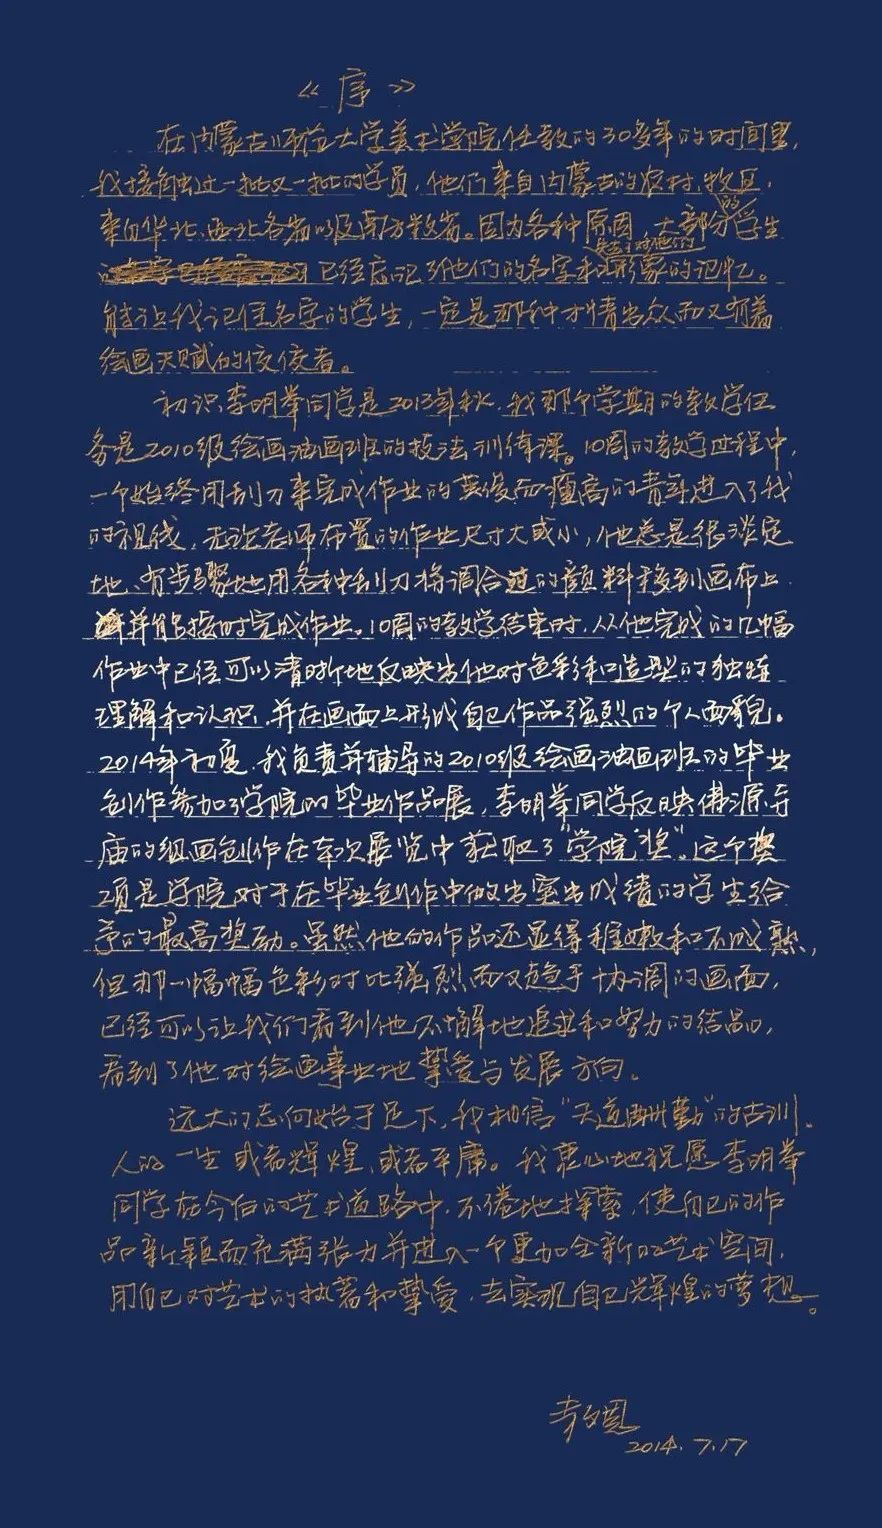 《序》
在内蒙古师范大学美术学院任教的30多年的时间里,
我接触过一批又一批的学员,他们来自内蒙古的农村,牧区,
来自华北、西北各省以及南方数省。因为各种原因,大部分的学生
已经忘记了他们的名字和失去了对他们形象的记忆。
能让我记住名字的学生,一定是那种才情出众而又有着
绘画天赋的佼佼者。
初识李明举同学是2013年秋,我那个学期的教学任
务是2010级绘画油画班的技法训练课。10周的教学过程中,
一个始终用刮刀来完成作业的英俊而瘦高的青年进入了我
的视线,无论老师布置的作业尺寸大或小,他总是很淡定
地、有步骤地用各种刮刀将调合过的颜料移到画布上
并能按时完成作业。10周的教学结束时,从他完成的几幅
作业中已经可以清晰地反映出他对色彩和造型的独特
理解和认识,并在画面上形成自己作品强烈的个人面貌。
2014年初夏,我负责并辅导的2010级绘画油画班的毕业
创作参加了学院的毕业作品展,李明举同学反映佛源寺
庙的组画创作在本次展览中获取了“学院奖”。这个奖
项是学院对于在毕业创作中做出突出成绩的学生给
予的最高奖励。虽然他的作品还显得稚嫩和不成熟,
但那一幅幅色彩对比强烈而又趋于协调的画面,
已经可以让我们看到他不懈地追求和努力的结晶,
看到了他对绘画事业地挚爱与发展方向。
远大的志向始于足下,我相信“天道酬勤”的古训。
人的一生或者辉煌,或者平庸。我衷心地祝愿李明举
同学在今后的艺术道路中,不倦地探索,使自己的作
品新颖而充满张力并进入一个更加全新的艺术空间,
用自己对艺术的执著和挚爱,去实现自己辉煌的梦想。
2014.7.17